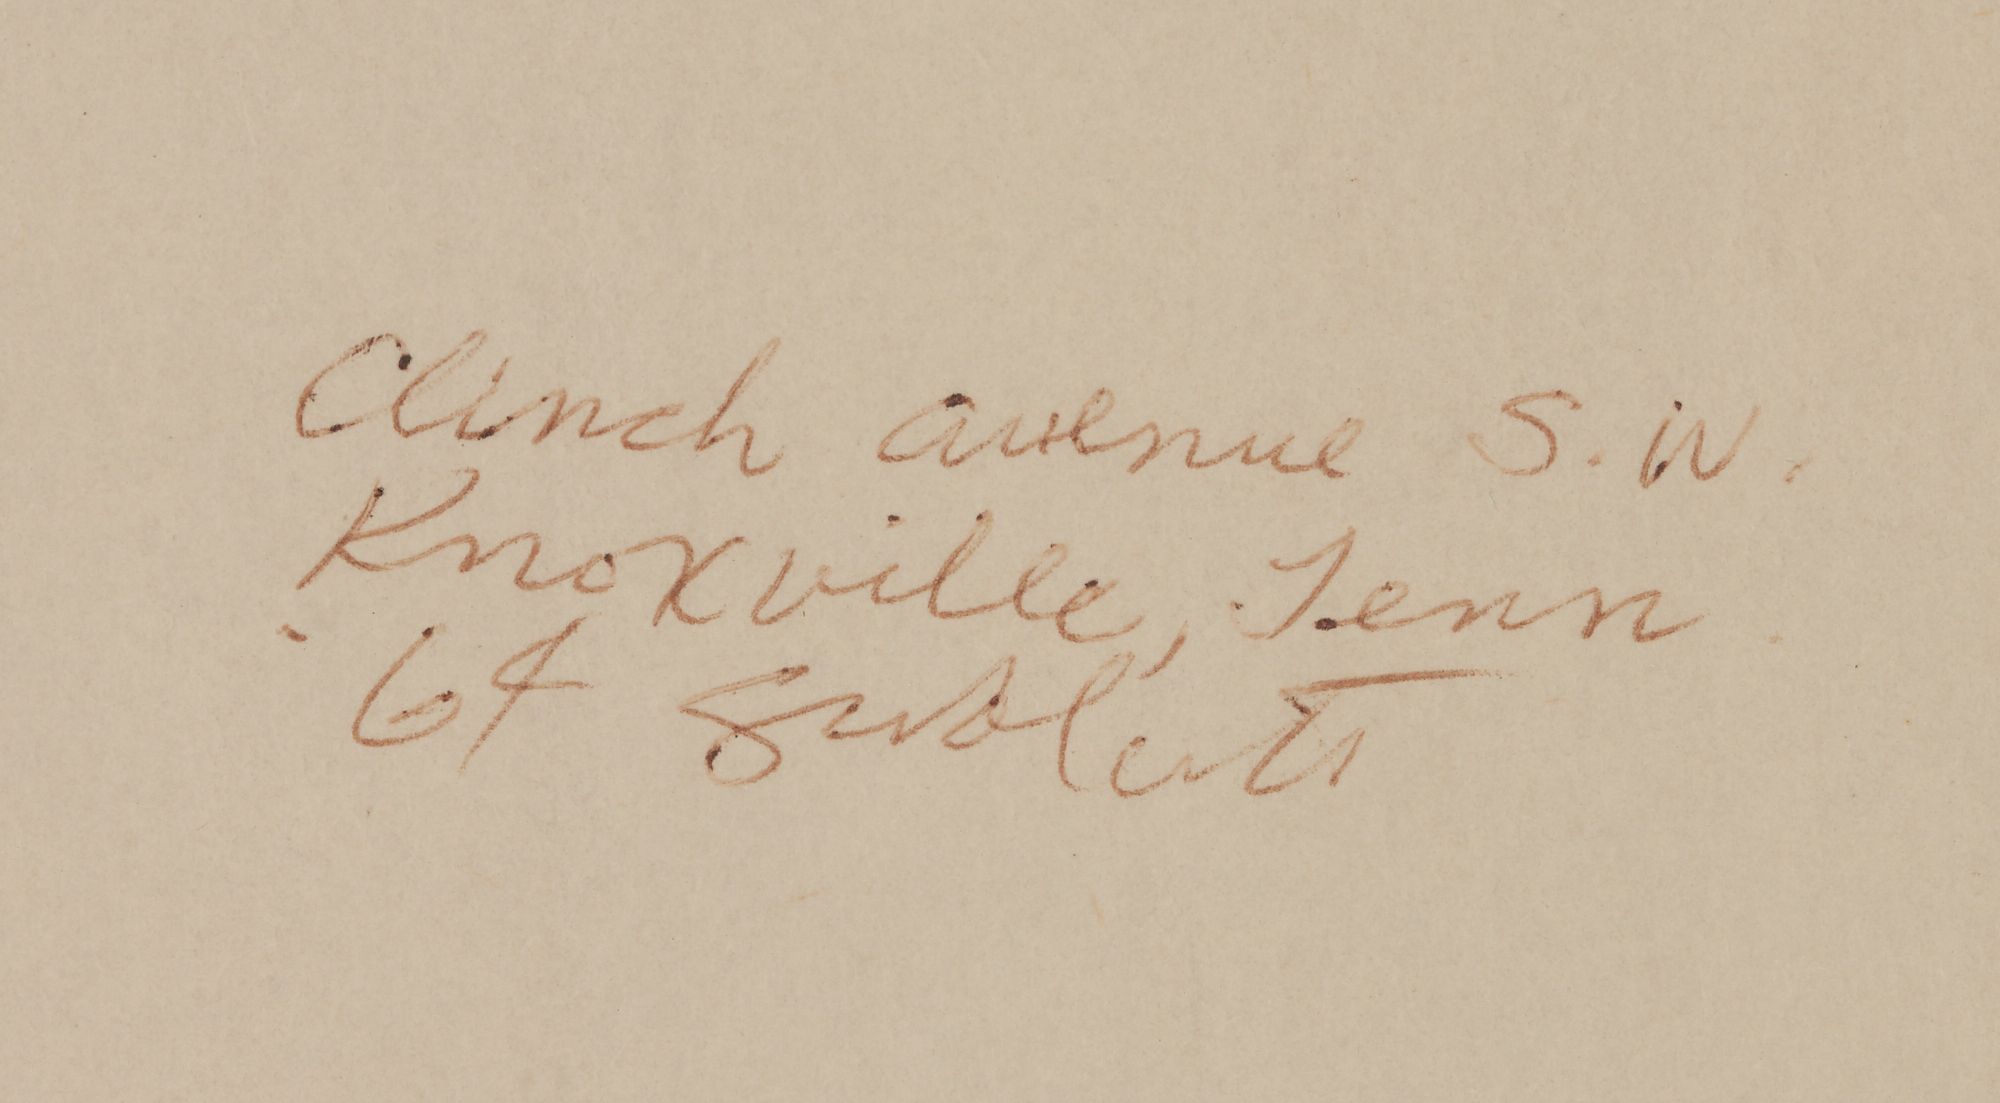 Clinch avenue S. W.
Knoxville, Tenn.
64